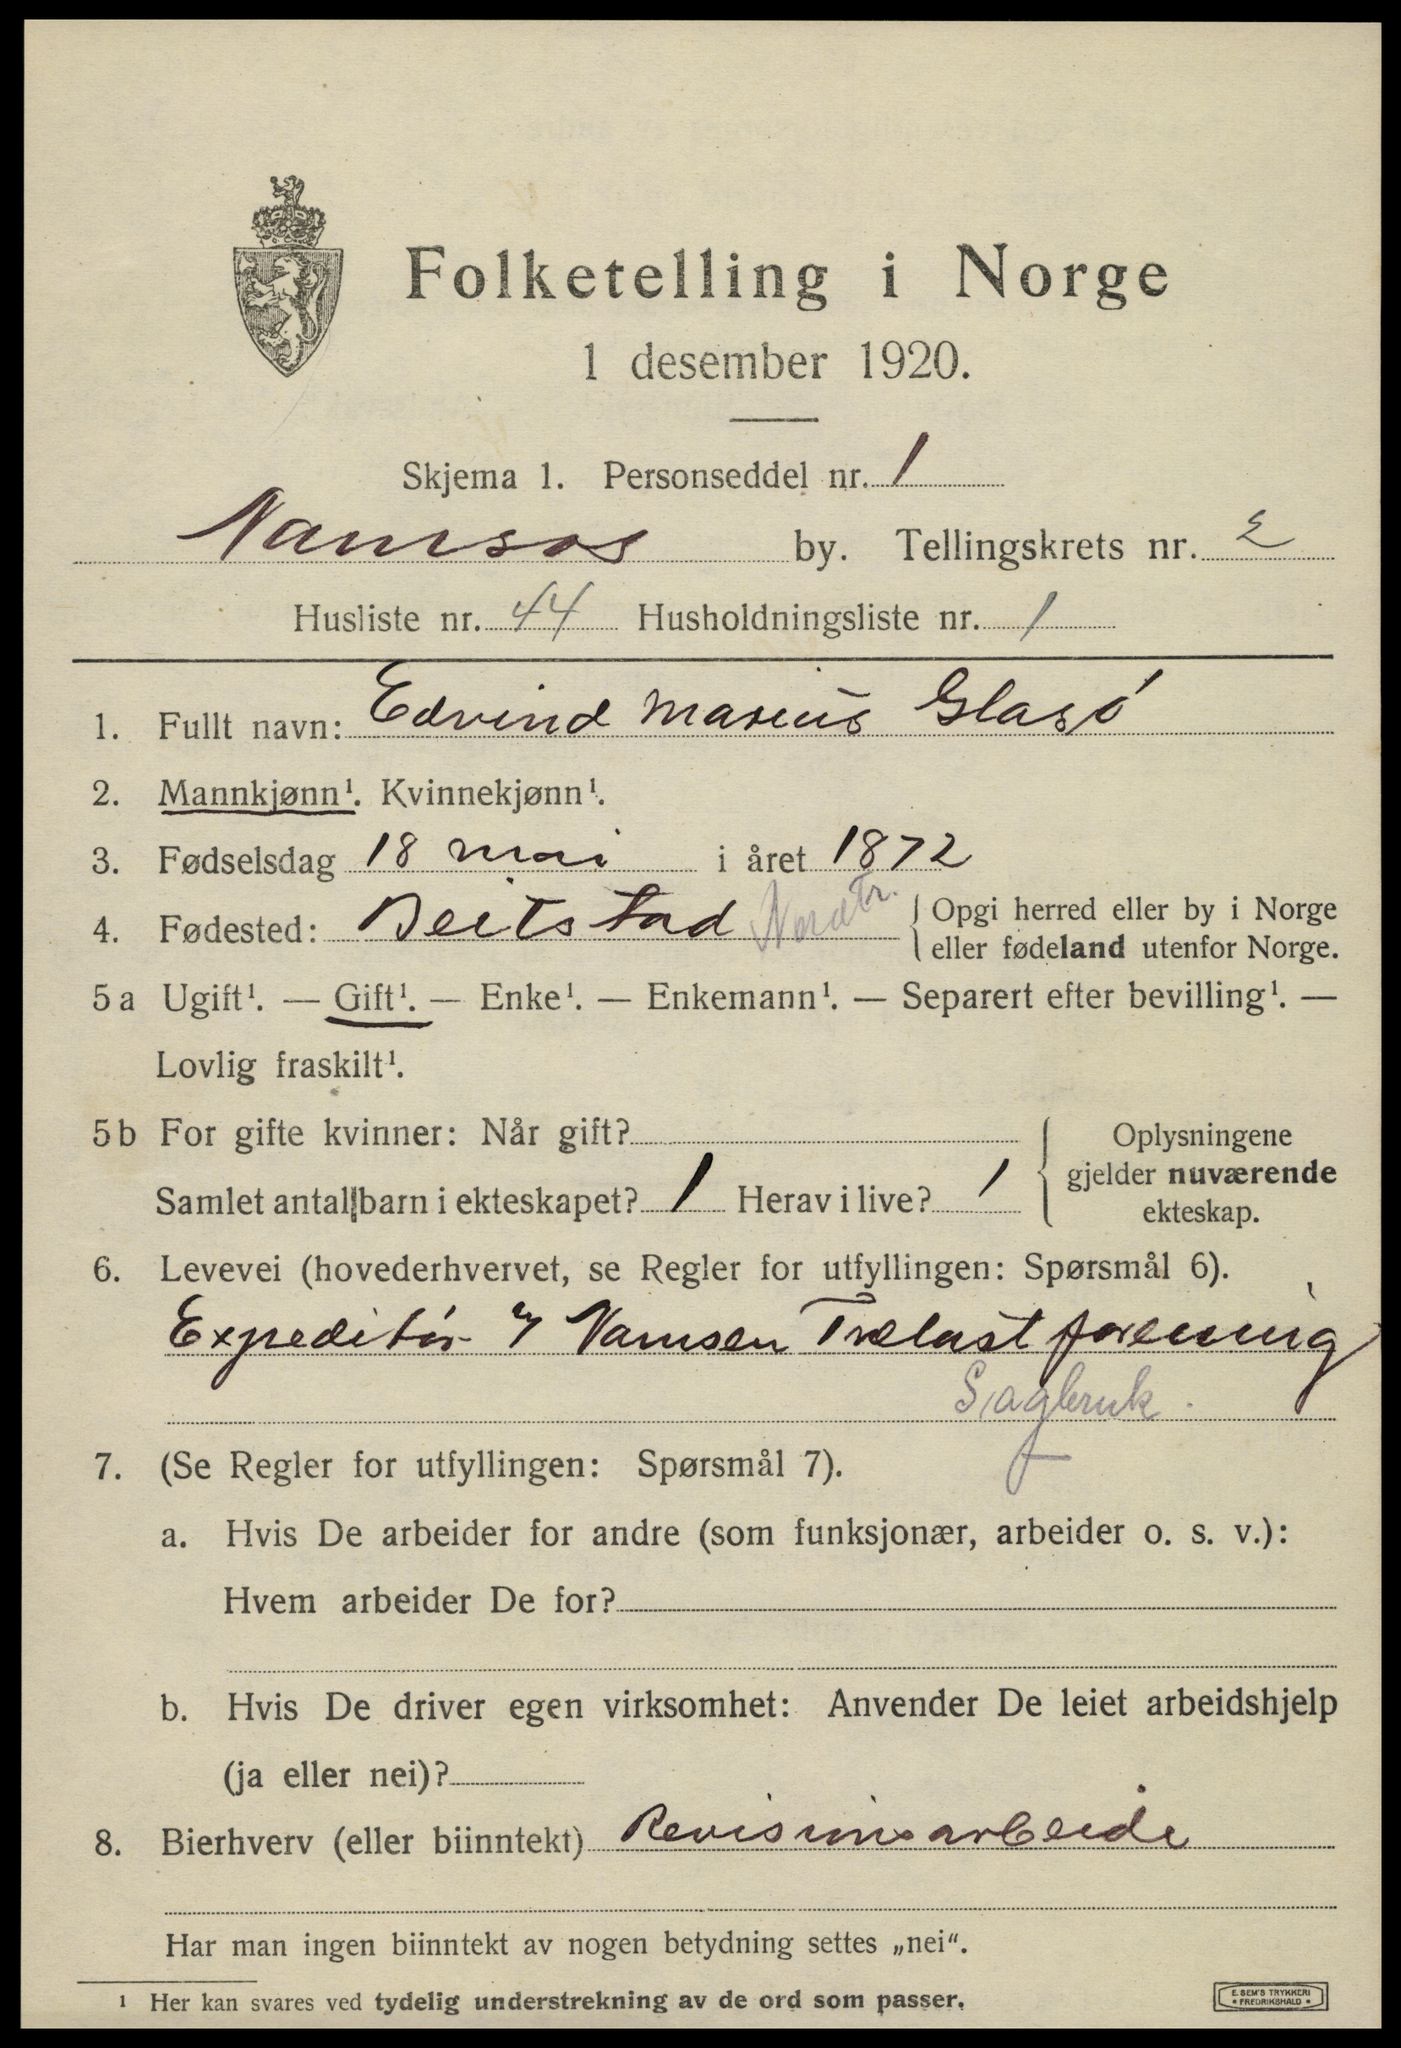 Folketelling i Norge
1 desember 1920.
Skjema 1. Personseddel nr. 1
Namsos by. Tellingskrets nr. 2
Husliste nr. 44 Husholdningsliste nr. 1
1. Fullt navn: Edvind Marius Glasö
2. Mannkjønn¹. Kvinnekjønn¹.
3. Fødselsdag 18 mai i året 1872
4. Fødested: Beitstad Nord Tr. Opgi herred eller by i Norge
eller fødeland utenfor Norge.
5 a Ugift¹. — Gift¹. — Enke¹. — Enkemann¹. — Separert efter bevilling¹. —
Lovlig fraskilt¹.
5 b For gifte kvinner: Når gift? Oplysningene
gjelder nuværende
Samlet antal barn i ekteskapet? 1 Herav i live? 1 ekteskap.
6. Levevei (hovederhvervet, se Regler for utfyllingen: Spørsmål 6).
Expeditör Namsen Trælastforening
Sagbruk.
7. (Se Regler for utfyllingen: Spørsmål 7).
a. Hvis De arbeider for andre (som funksjonær, arbeider o. s. v.):
Hvem arbeider De for?
b. Hvis De driver egen virksomhet: Anvender De leiet arbeidshjelp
(ja eller nei)?
8. Bierhverv (eller biinntekt) Revisionsarbeide
Har man ingen biinntekt av nogen betydning settes „nei“.
¹ Her kan svares ved tydelig understrekning av de ord som passer.
E. SEM'S TRYKKERI
* FREDRIKSHALD *